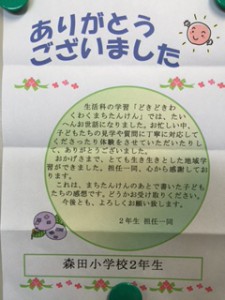 ありがとう
ございました
生活科の学習「どきどきわ
くわくまちたんけん」では、たい
へんお世話になりました。お忙しい中、
子どもたちの見学や質問に丁寧に対応して
くださったり体験をさせていただいたりし
て、ありがとうございました。
おかげさまで、とても生き生きとした地域学
習ができました。担任一同、心から感謝してお
ります。
これは、まちたんけんのあとで書いた子ども
たちの感想です。どうかお受け取りください。
今後とも、よろしくお願い致します。
2年生 担任一同
森田小学校2年生